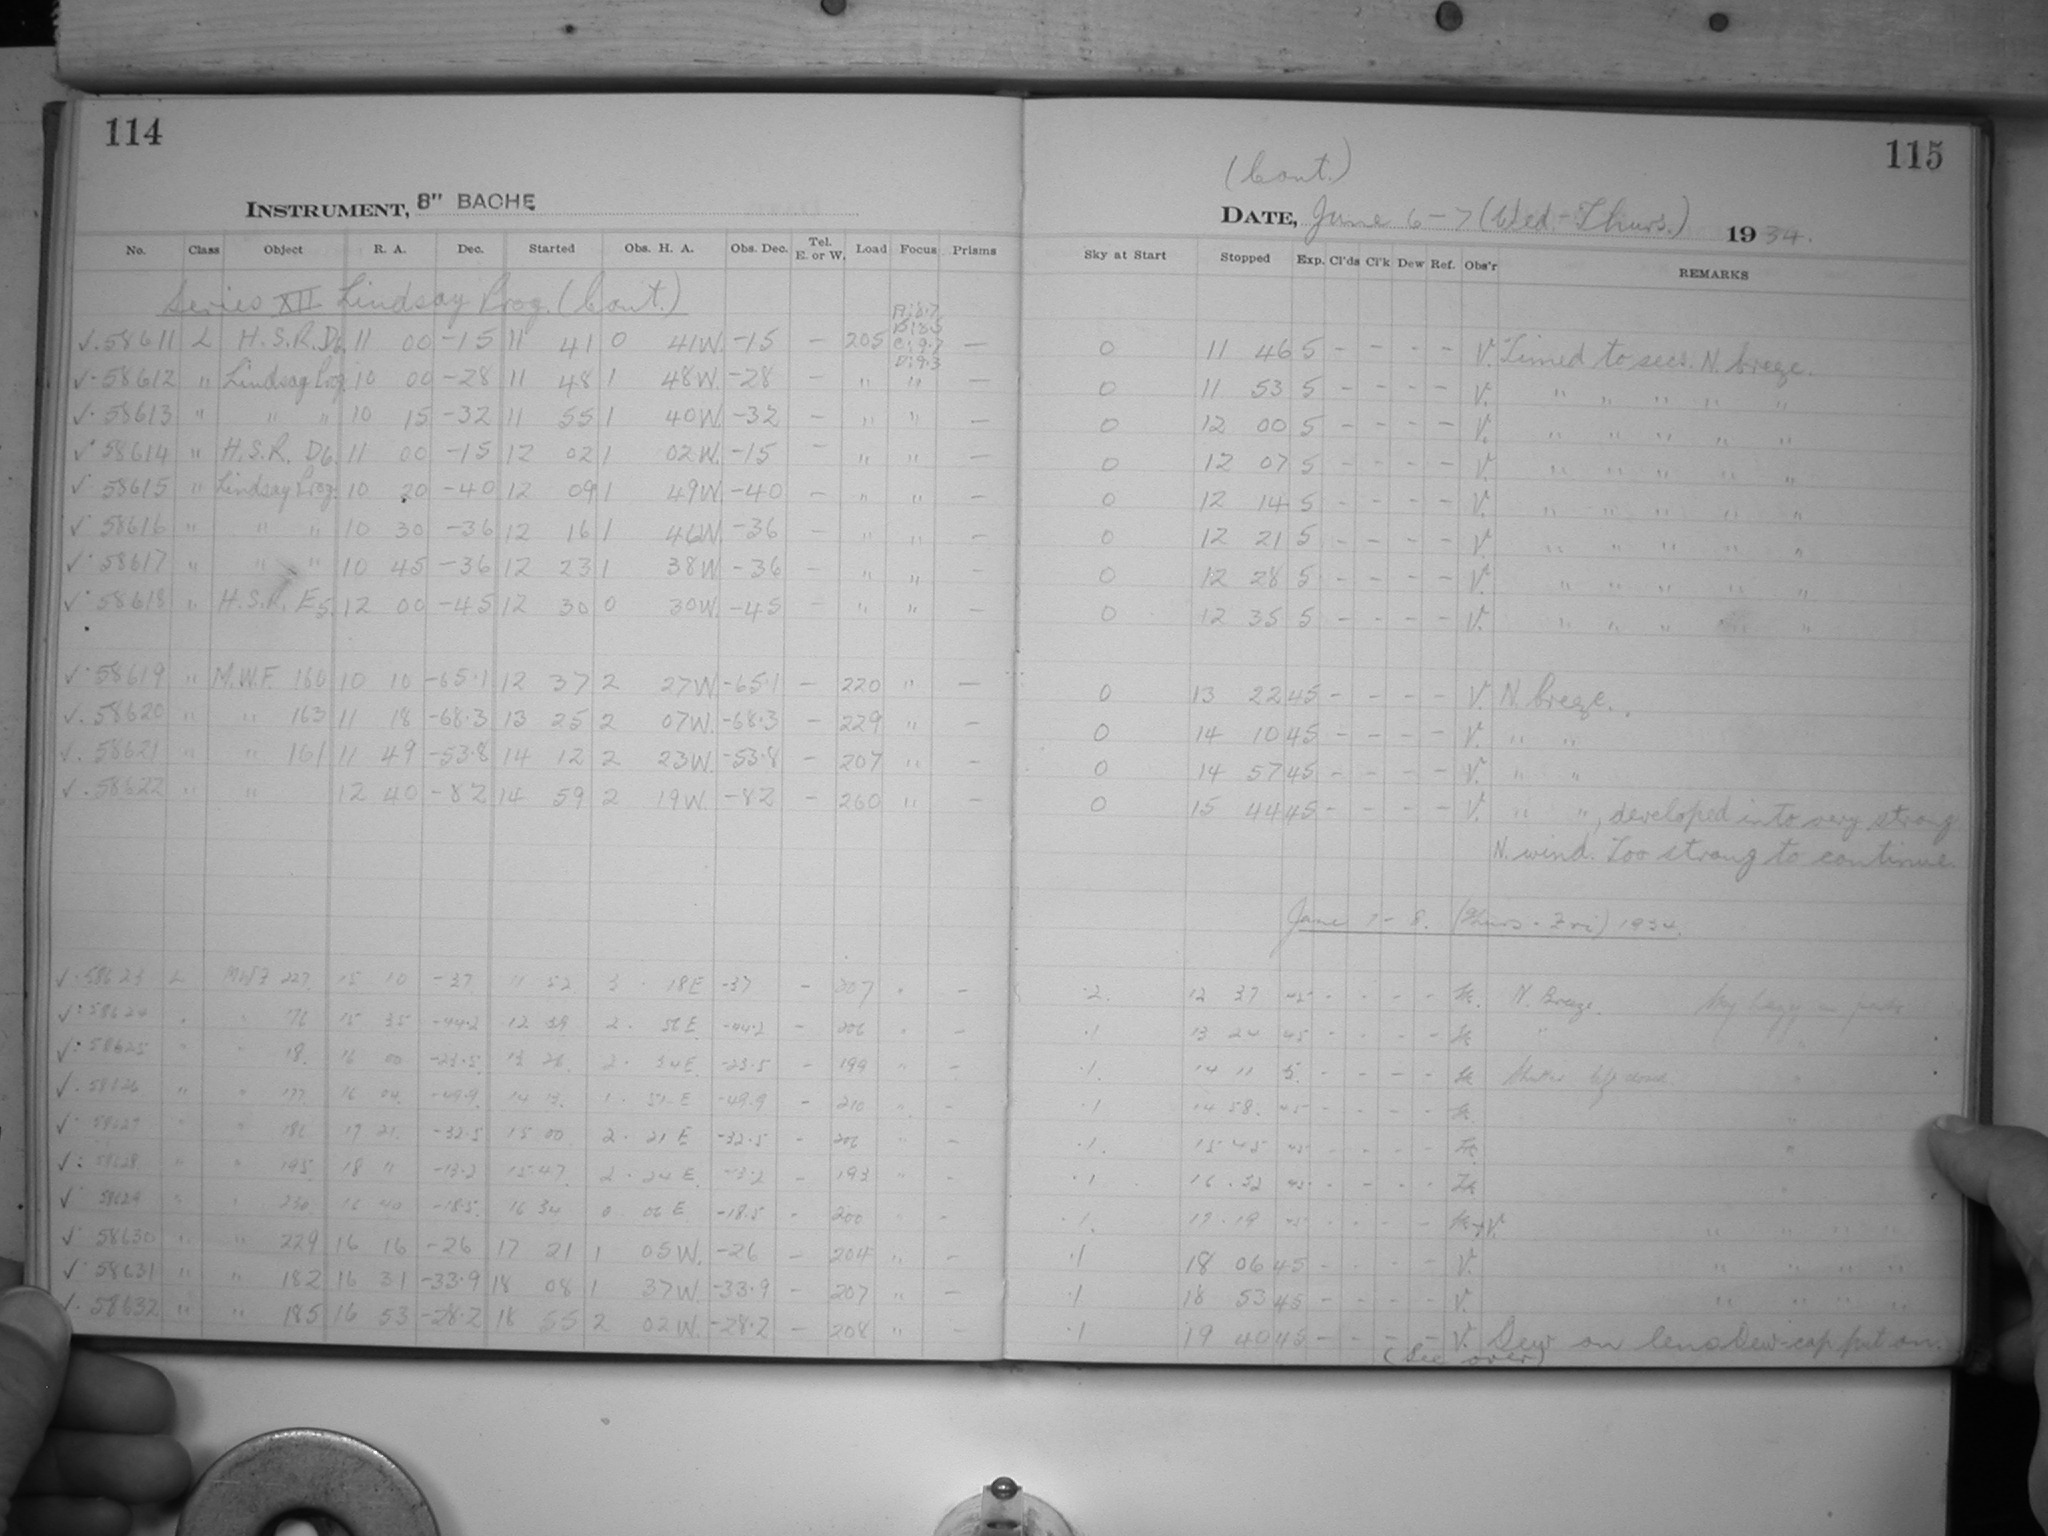 114
INSTRUMENT, 8" BACHE
No. Class Object R. A. Dec. Started Obs. H. A. Obs. Dec. Tel. E. or W. Load Focus Prisms
Series XII Lindsay Prog. (Cont.)
✓. 58611 L H.S.R. D6. 11 00 -15 11 41 0 41W. -15 - 205 A:8.7 B:8.5 C:9.7 D:9.3 -
✓. 58612 " Lindsay Prog. 10 00 -28 11 48 1 48W. -28 - " " -
✓. 58613 " " " 10 15 -32 11 55 1 40W. -32 - " " -
✓. 58614 " H.S.R. D6. 11 00 -15 12 02 1 02W. -15 - " " -
✓. 58615 " Lindsay Prog. 10 20 -40 12 09 1 49W. -40 - " " -
✓. 58616 " " " 10 30 -36 12 16 1 46W. -36 - " " -
✓. 58617 " " " 10 45 -36 12 23 1 38W. -36 - " " -
✓. 58618 " H.S.R. E5. 12 00 -45 12 30 0 30W. -45 - " "
✓. 58619 " M.W.F. 160 10 10 -65.1 12 37 2 27W. -65.1 - 220 " -
✓. 58620 " " 163 11 18 -68.3 13 25 2 07W. -68.3 - 229 " -
✓. 58621 " " 161 11 49 -53.8 14 12 2 23W. -53.8 - 207 " -
✓. 58622 " " 12 40 -82 14 59 2 19W. -82 - 260 " -
✓. 58623 L MWF 227 15 10 -37 11 52 3 . 18E -37 - 207 " -
✓: 58624 " " 176 15 35 -44.2 12 39 2 . 56E -44.2 - 206 " -
✓: 58625 " " 18 16 00 -23.5 13 26 2 . 34E. -23.5 - 199 " -
✓. 58626 " " 177 16 04 -49.9 14 13 1 . 51 E -49.9 - 210 " -
✓. 58627 " " 186 17 21 -32.5 15 00 2 . 21 E -32.5 - 206 " -
✓: 58628 " " 195 18 11 -13.2 15.47 2 . 24 E -13.2 - 193 " -
✓ 58629 " " 230 16 40 -18.5 16 34 0 06 E -18.5 - 200 " -
✓ 58630 " " 229 16 16 -26 17 21 1 05W. -26 - 204 " -
✓. 58631 " " 182 16 31 -33.9 18 08 1 37W. -33.9 - 207 " -
✓. 58632 " " 185 16 53 -28.2 18 55 2 02W. -28.2 - 208 " -
115
(Cont.)
DATE, June 6-7 (Wed.-Thurs.) 1934.
Sky at Start Stopped Exp. Cl'ds Cl'k Dew Ref. Obs'r REMARKS
0 11 46 5 - - - - V. Timed to secs. N. breeze.
0 11 53 5 - - - - V. " " " " "
0 12 00 5 - - - - V. " " " " "
0 12 07 5 - - - - V. " " " " "
0 12 14 5 - - - - V. " " " " "
0 12 21 5 - - - - V. " " " " "
0 12 28 5 - - - - V. " " " " "
0 12 35 5 - - - - V. " " " " "
0 13 22 45 - - - - V. N. breeze.
0 14 10 45 - - - - V. " "
0 14 57 45 - - - - V. " "
0 15 44 45 - - - - V. " ", developed into very strong
N. wind. Too strong to continue.
June 7-8. (Thurs-Fri) 1934.
.2. 12 37 45 - - - - N. Breeze. Sky hazy in
.1 13 24 45 - - - - " "
.1. 14 11 5. - - - - Shutter left "
.1 14 58. 45 - - - - "
.1. 15 45 45 - - - - "
.1 16 . 32 45 - - - - "
.1. 17 . 19 45 - - - - V. " " " "
.1 18 06 45 - - - - V. " " " "
.1 18 53 45 - - - - V. " " " "
.1 19 40 45 - - - - V. Dew on lens Dew-cap put on.
(See over)